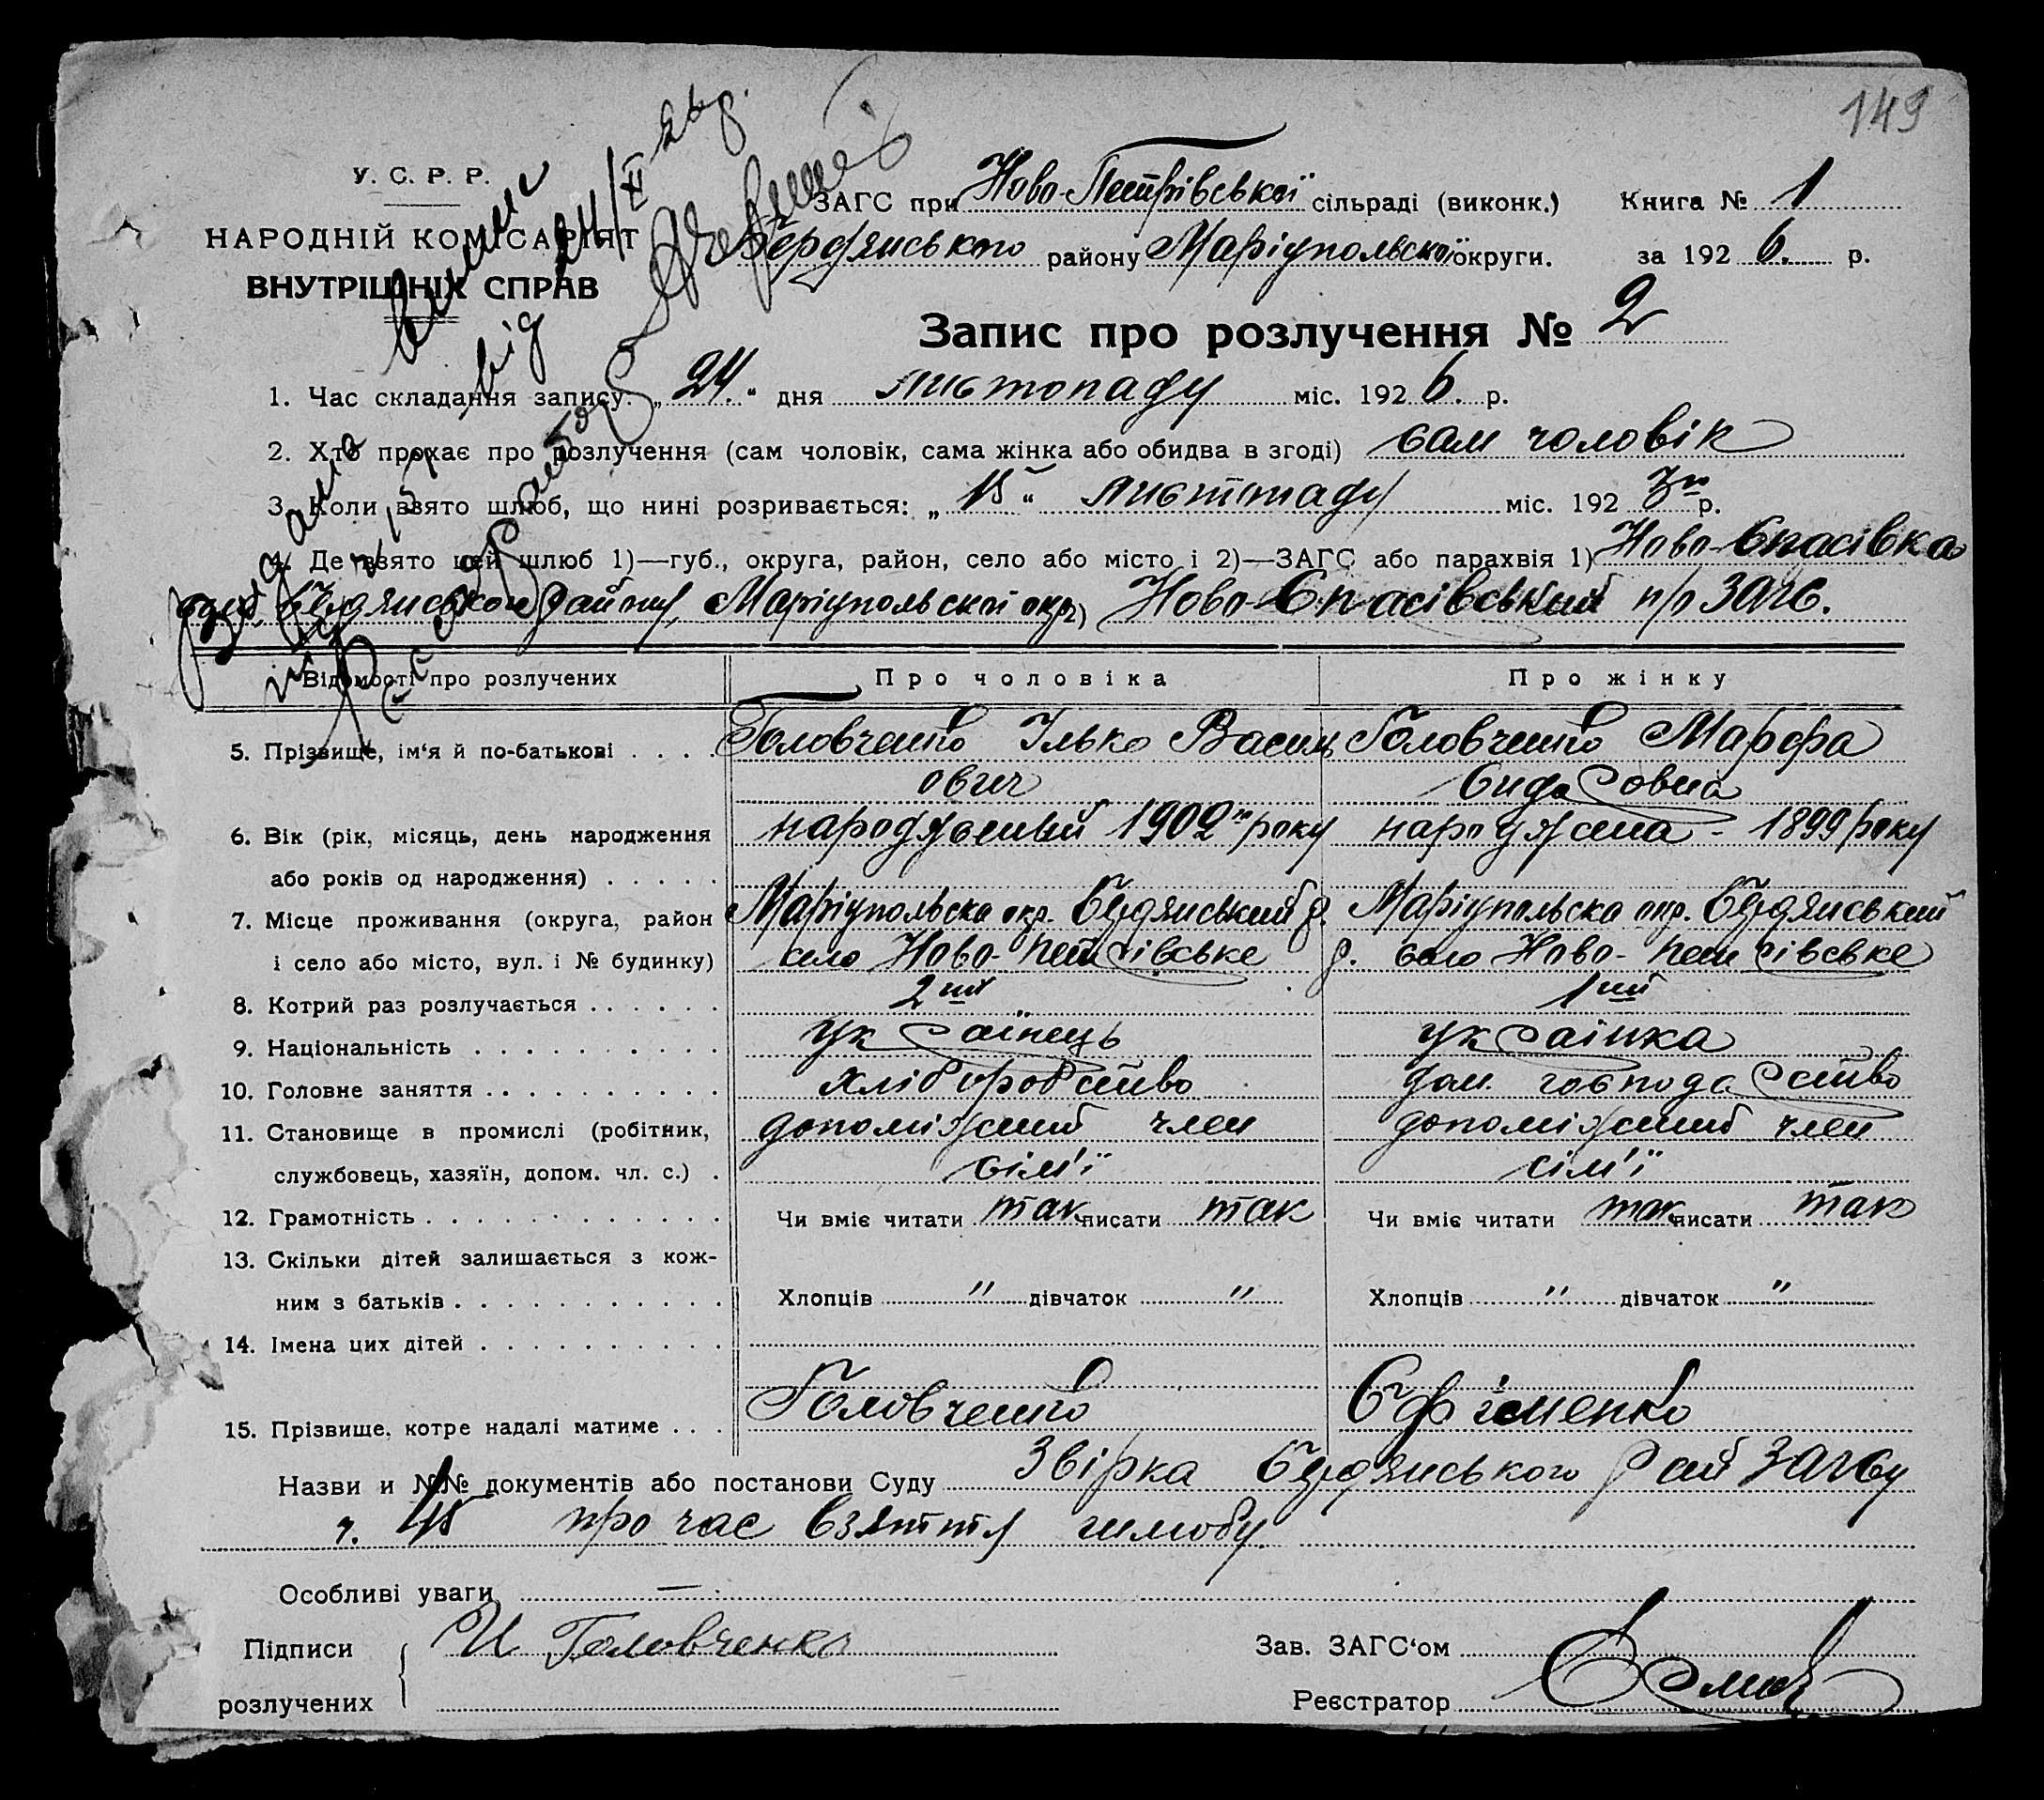 149
У. С. Р. Р.
НАРОДНІЙ КОМІСАРІЯТ
ВНУТРІШНІХ СПРАВ
ЗАГС при Ново-Петрівської сільраді (виконк.) Книга № 1
Бердянського району Маріупольської округи. за 1926. р.
Запис про розлучення № 2
1. Час складання запису: „24.“ дня листопаду міс. 1926. р.
2. Хто прохає про розлучення (сам чоловік, сама жінка або обидва в згоді) сам чоловік
3. Коли взято шлюб, що нині розривається: „15“ листопаду міс. 1923го р.
4. Де взято цей шлюб 1)—губ., округа, район, село або місто і 2)—ЗАГС або парахвія 1) Ново-Спасівка
Бердянського району, Маріупольскої окр. 2) Ново-Спасівський п/р ЗАГС.
випис
від 24/XI 26 р.
Відомості про розлучених
Про чоловіка
Про жінку
5. Прізвище, ім‘я й по-батькові . . . . Головченко Ілько Василь Головченко Марфа
ович
6. Вік (рік, місяць, день народження народженый 1902го року народжена - 1899 року
або років од народження) . . . . .
7. Місце проживання (округа, район Маріупольска окр. Бердянський р. Маріупольска окр. Бердянський
і село або місто, вул. і № будинку) село Ново-Петрівське р. село Ново-Петрівське
8. Котрий раз розлучається . . . . . . 2ий 1ий
9. Національність . . . . . . . . . . українець українка
10. Головне заняття . . . . . . . . . . хліборобство дом. господарство
11. Становище в промислі (робітник, допоміжний член допоміжний член
службовець, хазяїн, допом. чл. с.) . сім'ї сім'ї
12. Грамотність . . . . . . . . . . . . Чи вміє читати так писати так Чи вміє читати так писати так
13. Скільки дітей залишається з кож-
ним з батьків . . . . . . . . . . . Хлопців " дівчаток " Хлопців " дівчаток "
14. Імена цих дітей . . . . . . . . . .
15. Прізвище, котре надалі матиме . . . Головченко Єфіменко
Назви и №№ документів або постанови Суду Звірка Бердянського Рай ЗАГСу
ч. 45 про час взяття шлюбу.
Особливі уваги —
Підписи И Головченко Зав. ЗАГС‘ом
розлучених Реєстратор